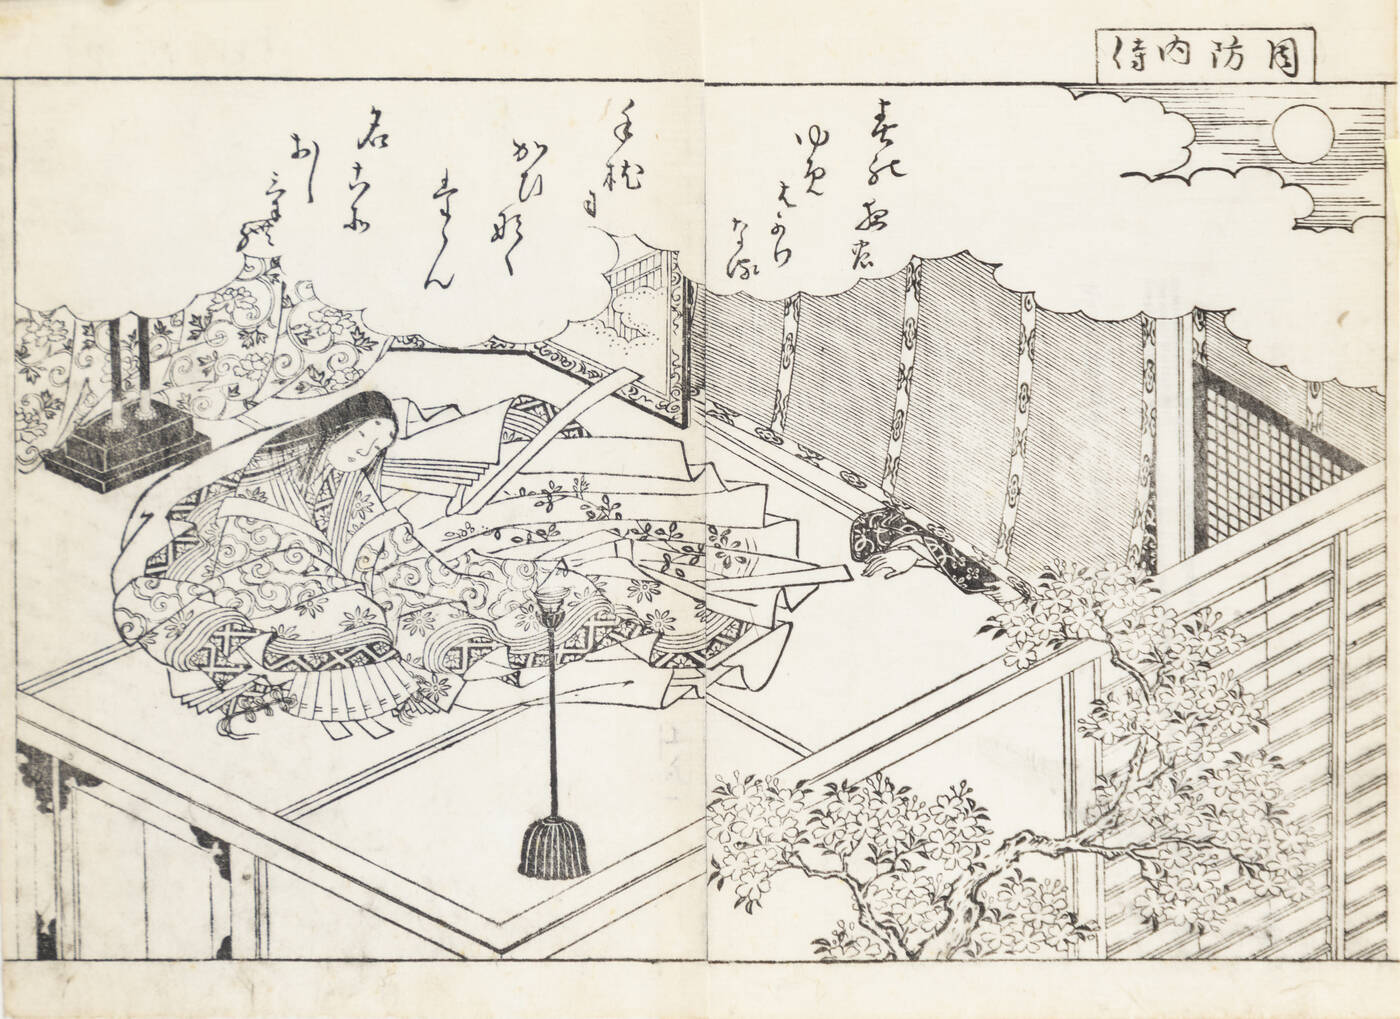 周防内侍
春の夜の
ゆめ
はかり
なる
手枕
に
かひなく
たゝん
名こそ
おし
けれ